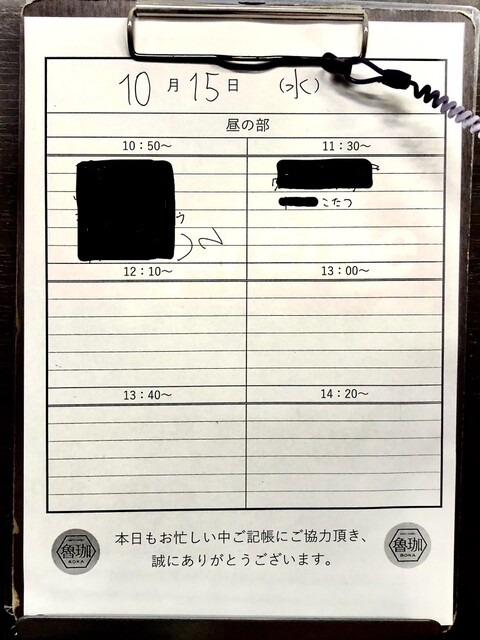 10月15日 (水)
昼の部
10：50〜
11：30〜
う
2
こたつ
12：10〜
13：00〜
13：40〜
14：20〜
本日もお忙しい中ご記帳にご協力頂き、
誠にありがとうございます。
魯珈
ROKA
魯珈
ROKA